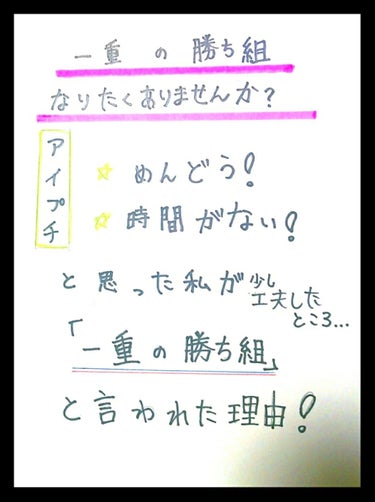 一重の勝ち組
なりたくありませんか?
アイプチ
☆めんどう!
☆時間がない!
と思った私が少し
工夫した
ところ…
「一重の勝ち組」
と言われた理由!